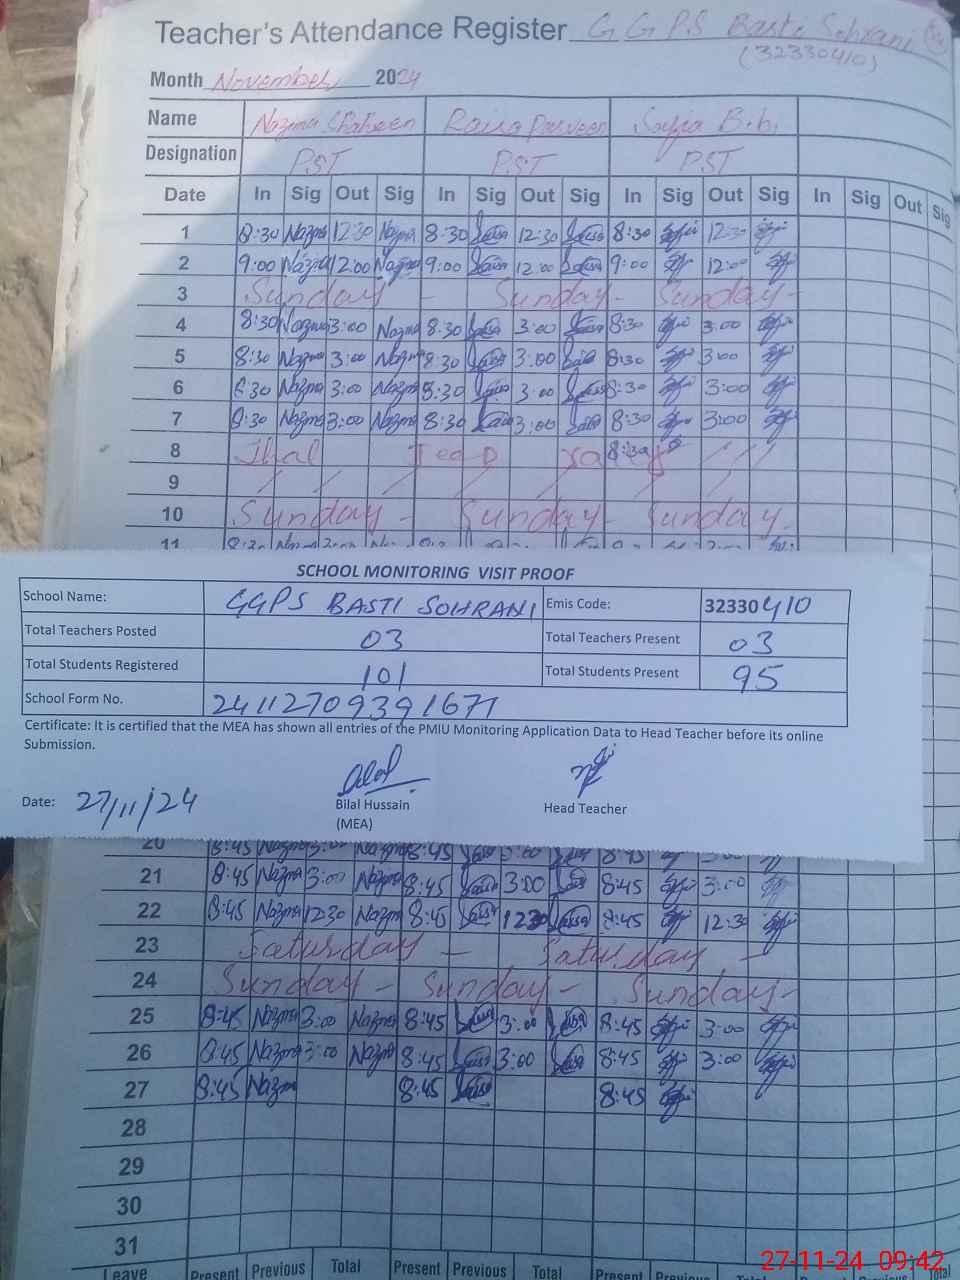 Teacher's Attendance Register G G P.S Basti Sohrani
(32330410)
Month November 2024
Name Nazma Shaheen Raisa Parveen Safia B.bi
Designation PST PST PST
Date In Sig Out Sig In Sig Out Sig In Sig Out Sig In Sig Out Sig
1 8:30 Nazma 12:30 Nazma 8:30 12:30 8:30 12:30
2 9:00 Nazma 12:00 Nazma 9:00 12:00 9:00 12:00
3 Sunday - Sunday - Sunday -
4 8:30 Nazma 3:00 Nazma 8:30 3:00 8:30 3:00
5 8:30 Nazma 3:00 Nazma 8:30 3:00 8:30 3:00
6 8:30 Nazma 3:00 Nazma 8:30 3:00 8:30 3:00
7 8:30 Nazma 3:00 Nazma 8:30 3:00 8:30 3:00
8 8:30
9
10 Sunday - Sunday - Sunday
11
SCHOOL MONITORING VISIT PROOF
School Name: GGPS BASTI SOHRANI Emis Code: 32330410
Total Teachers Posted 03 Total Teachers Present 03
Total Students Registered 101 Total Students Present 95
School Form No. 24112709391671
Certificate: It is certified that the MEA has shown all entries of the PMIU Monitoring Application Data to Head Teacher before its online
Submission.
Date: 27/11/24 Bilal Hussain Head Teacher
(MEA)
20 8:45 Nazma 3:00 Nazma 8:45 3:00 8:45 3:00
21 8:45 Nazma 3:00 Nazma 8:45 3:00 8:45 3:00
22 8:45 Nazma 12:30 Nazma 8:45 1230 8:45 12:30
23 Saturday - Saturday -
24 Sunday - Sunday - Sunday -
25 8:45 Nazma 3:00 Nazma 8:45 3:00 8:45 3:00
26 8:45 Nazma 3:00 Nazma 8:45 3:00 8:45 3:00
27 8:45 Nazma 8:45 8:45
28
29
30
31
Leave Present Previous Total Present Previous Total Present Previous Total Present Previous Total
27-11-24 09:42